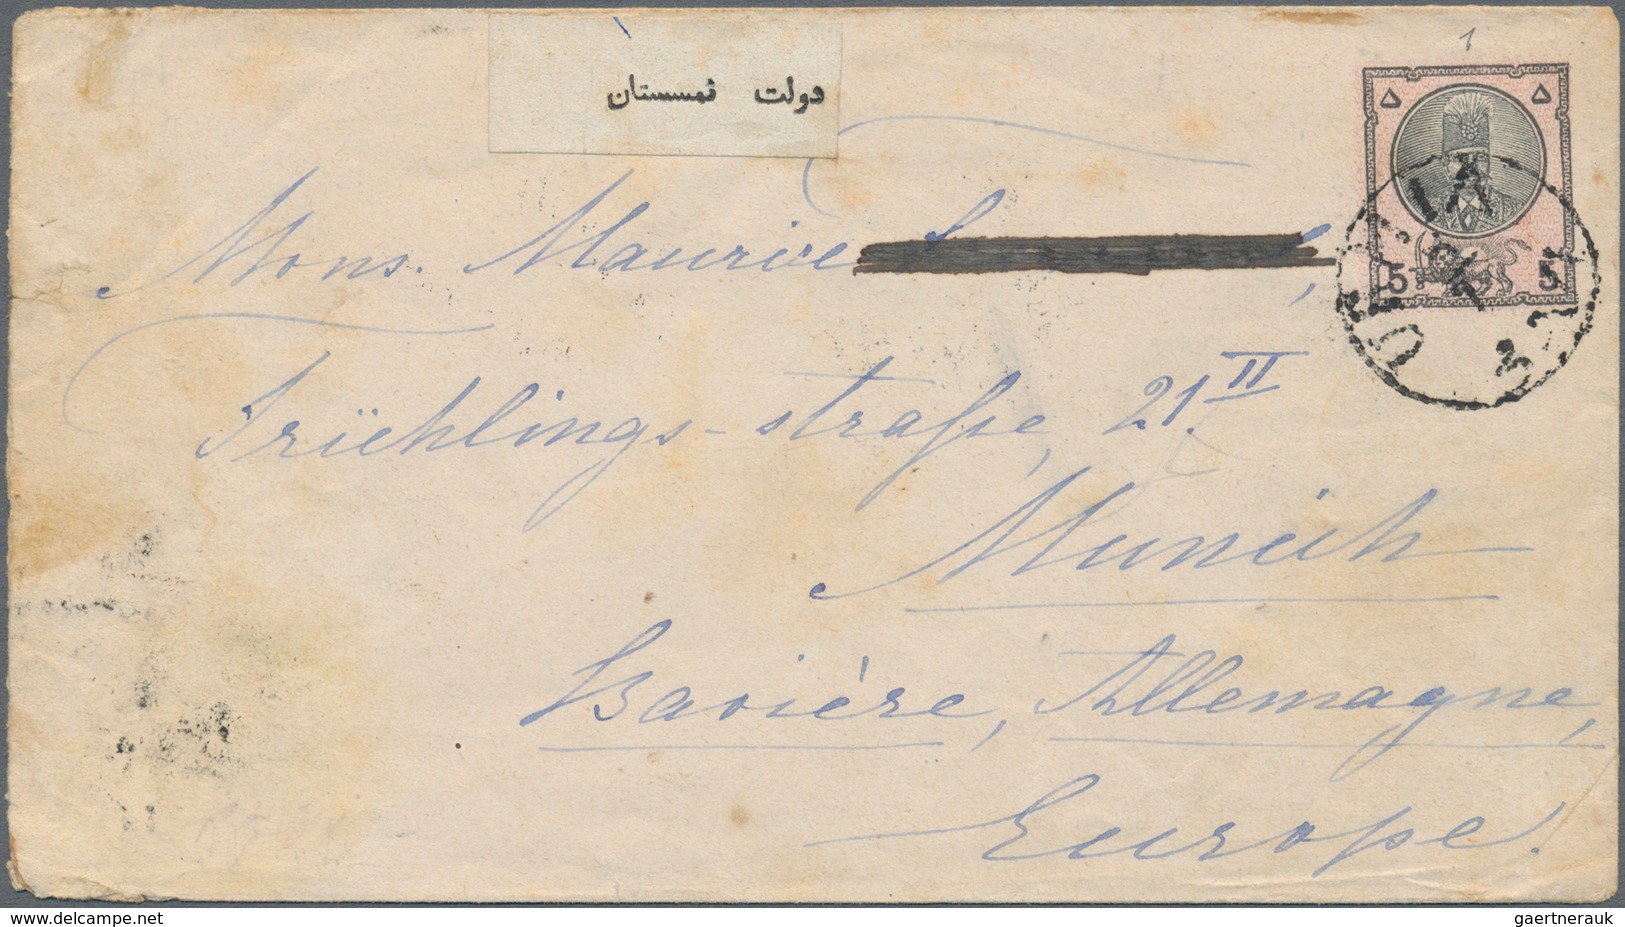 1
دولت نمسستان
۵ ۵
Mons. Maurice
5 5
Früehlings-straße, 21.II
Munich
Bavière, Allemagne,
Europe.
www.delcampe.net
gaertnerauk